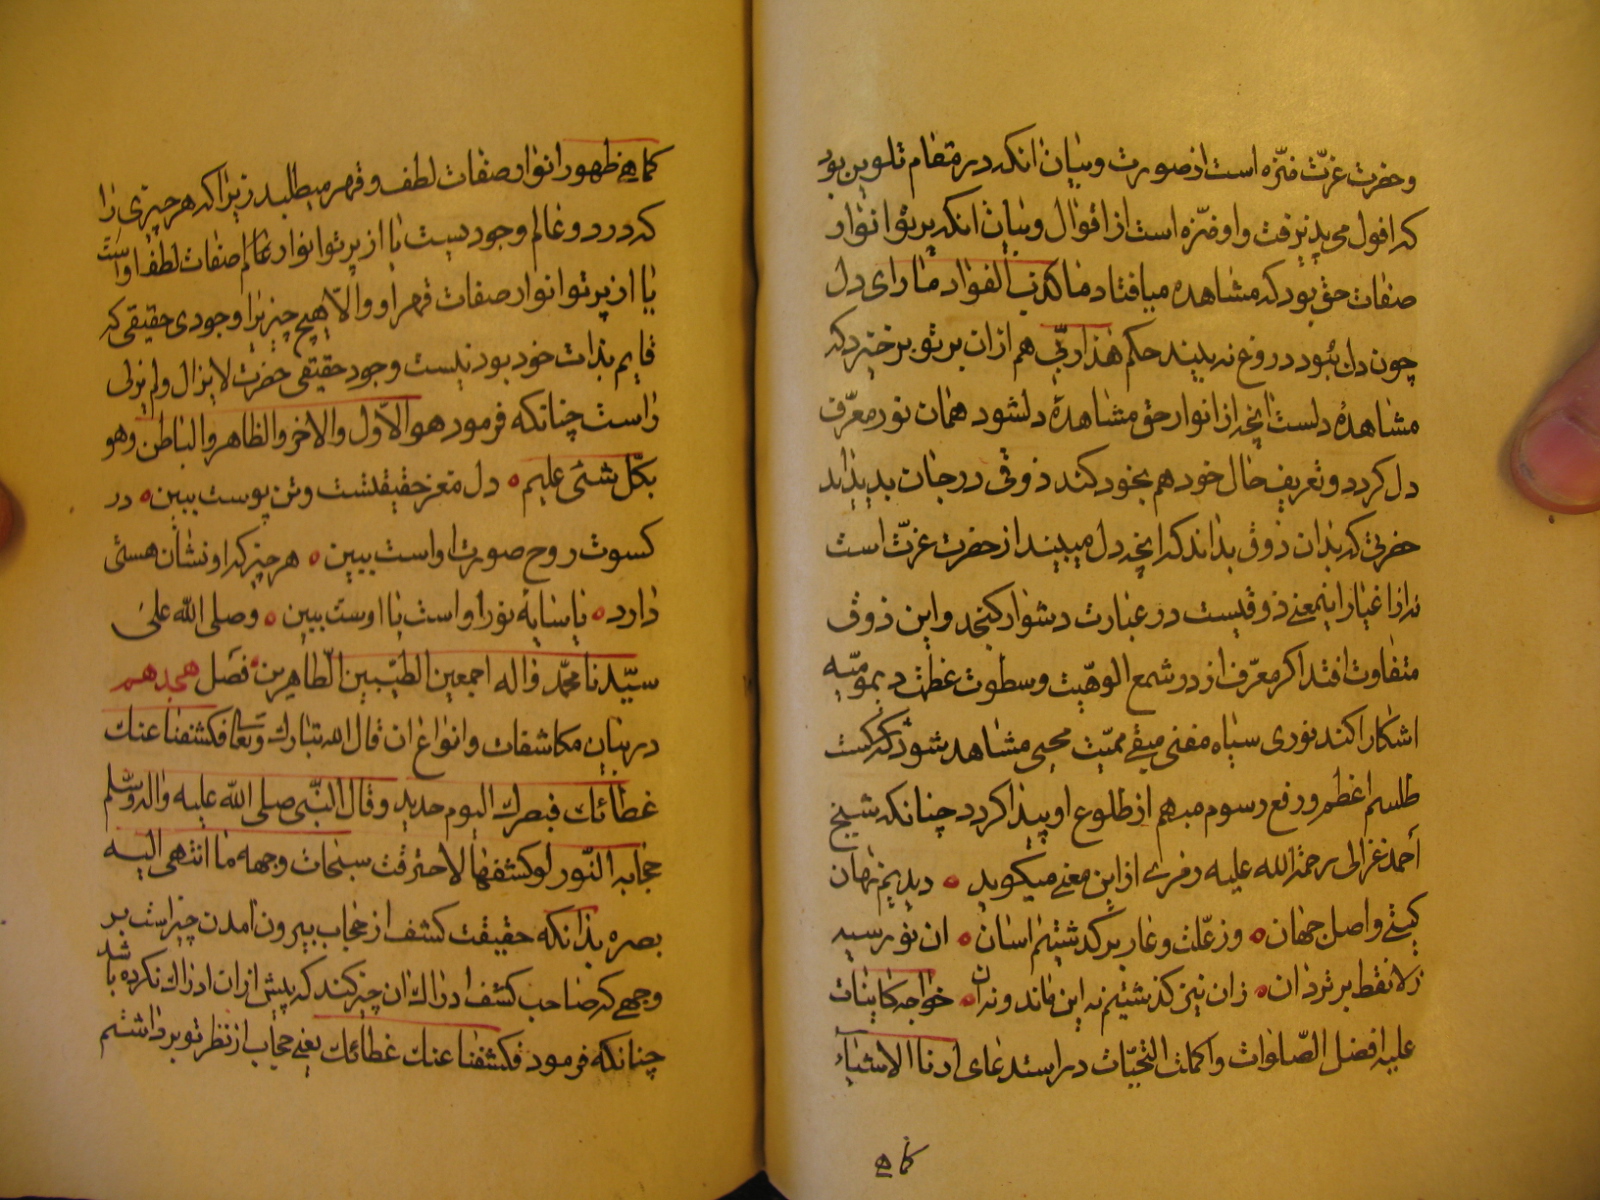 وحضرت عزّت منزّه است از صورت وبیان آنکه در مقام تلوین بود
که افول می پذیرفت واو منزّه است از افوال وبیان آنکه پرتو انوار
صفات حق بود که مشاهده میافتاد ما کذب الفواد ما رای دل
چون دل بشود دروغ نه بیند حکم هذا ربّی هم از ان پرتو برخیزد که
مشاهدهٔ دلست انچه از انوار حق مشاهدهٔ دلشود همان نور معرّف
دل کردد وتعریف حال خود هم بخود کند ذوقی در جان بدید اید
حضرتی که بدان ذوق بداند که انچه دل میبیند از حضرت عزّت است
نه از اغیار اینمعنی ذوقیست در عبارت دشوار کنجد واین ذوق
متفاوت افتد اکر معرّف از در شمع الوهیّت وسطوت عظمت دیمومیّه
اشکارا کند نوری سیاه مفنی مبقی ممیت محیی مشاهد شود که کست
طلسم اعظم ورفع رسوم مبهم از طلوع او پیدا کردد چنانکه شیخ
احمد غزالی رحمة الله علیه رمزی از این معنی میکوید دیدیم نهان
کیتی واصل جهان وز علّت وعار برکذشتیم اسان ان نور سیه
ز لا نقط برتر دان زان نیز کذشتیم نه این ماند ونه ان خواجه کاینات
علیه افضل الصّلوات واکملت التحیّات در استدعای ارنا الاشیاء
کما هی
کما هی ظهور انوار صفات لطف وقهر میطلبد زیرا که هر چیزی را
که در دو عالم وجود دیست یا از پرتو انوار عالم صفات لطف او است
یا از پرتو انوار صفات قهر او والا هیچ چیز را وجودی حقیقی که
قایم بذات خود بود نیست وجود حقیقی حضرت لایزال ولم یزلی
راست چنانکه فرمود هو الاّول والاخر والظاهر والباطن وهو
بکّل شئی علیم دل مغز حقیقتست وتن پوست ببین در
کسوت روح صورت اواست ببین هر چیز که او نشان هستی
دارد یا سایهٔ نور او است یا اوست ببین وصلی الله علی
سیّدنا محمّد واله اجمعین الطیّبین الّطاهرین فصل هجدهم
در بیان مکاشفات وانواع ان قال الله تبارک وتعا فکشفنا عنک
غطائک فبصرک الیوم حدید وقال النّبی صلی الله علیه واله وسّلم
حجابه النّور لو کشفها لاحترقت سبحات وجهه ما انتهی الیه
بصره بدانکه حقیقت کشف از حجاب بیرون امدن چیز است بر
وجهی که صاحب کشف ادراک ان چیز کند که پیش از ان ادراک نکرده باشد
چنانکه فرمود فکشفنا عنک غطائک یعنی حجاب از نظر تو برداشتم